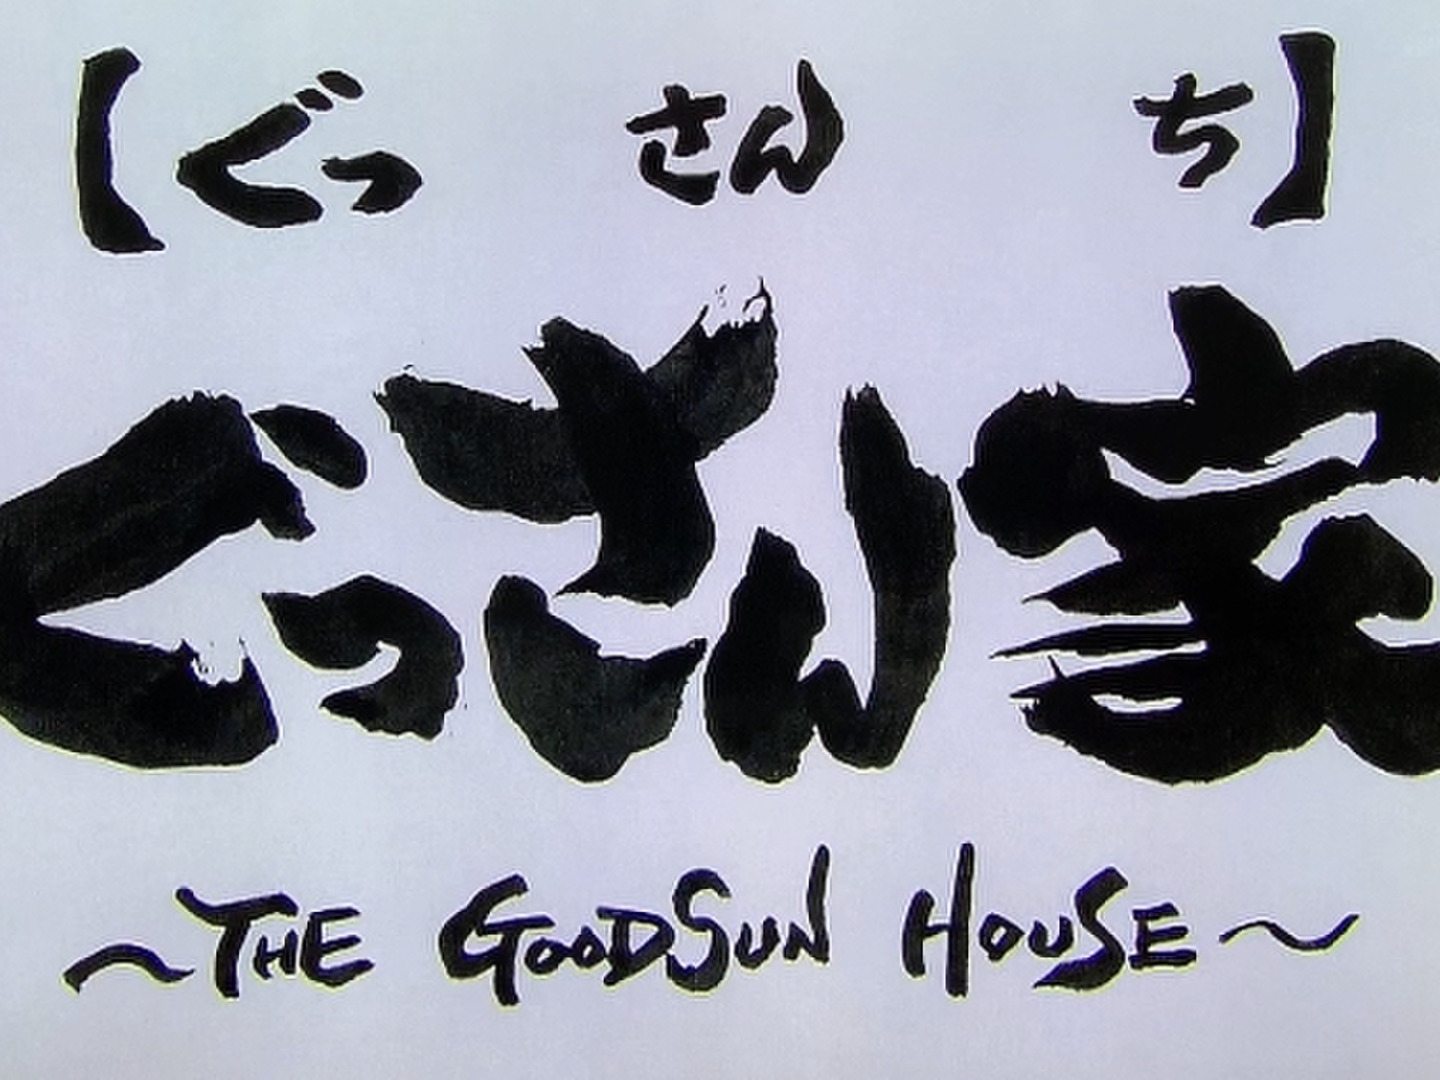 【ぐっさんち】
ぐっさん家
~THE GOODSUN HOUSE~